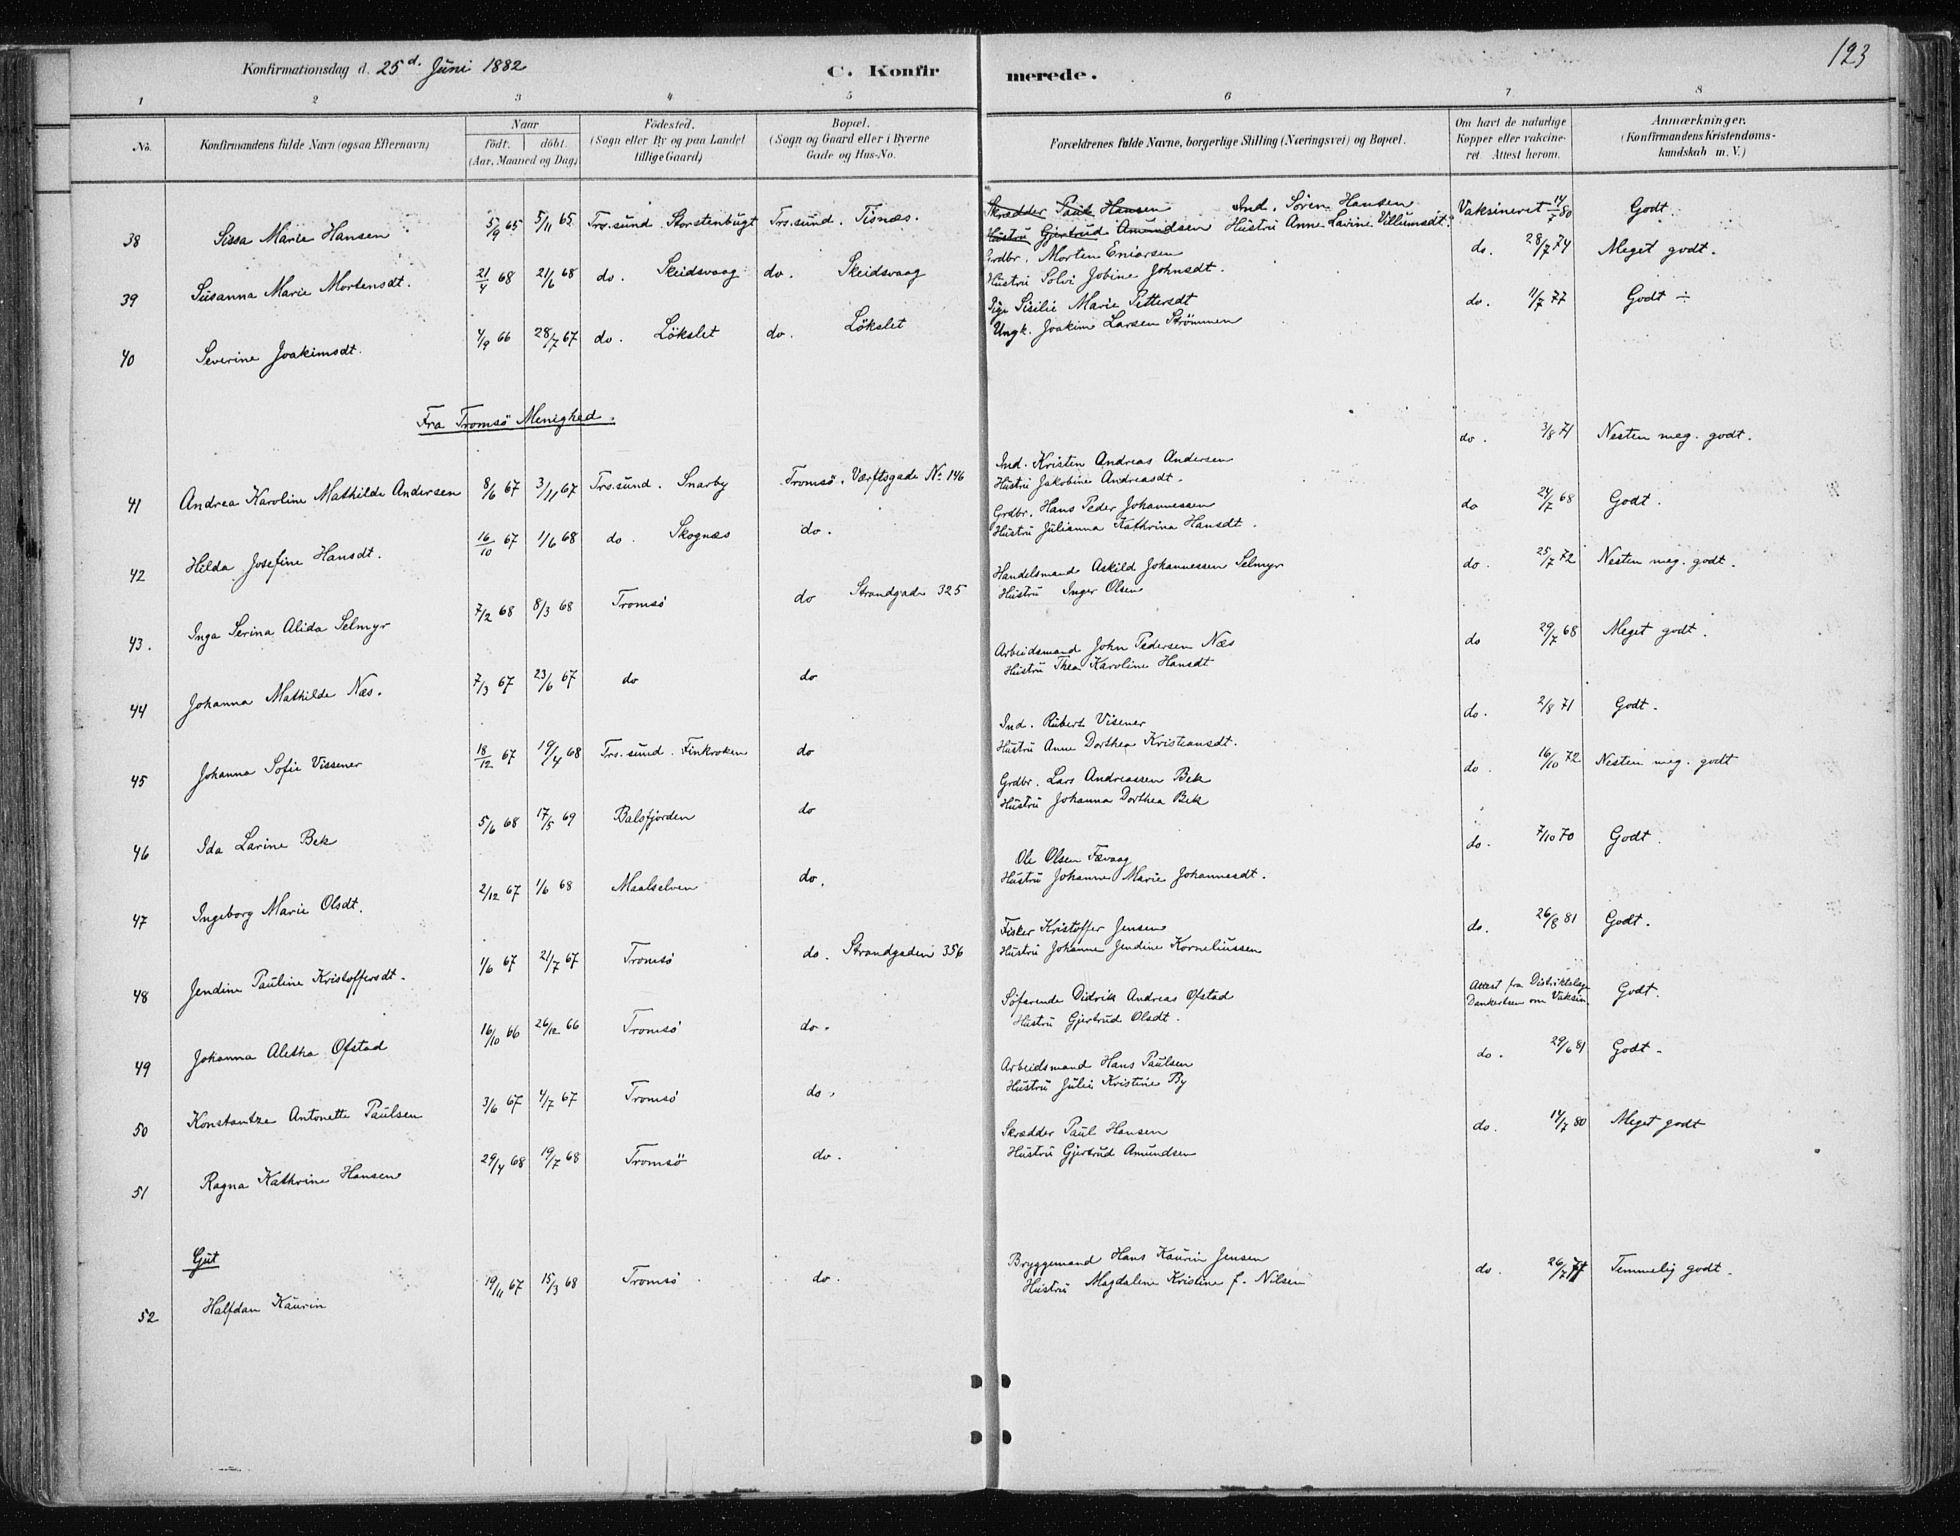 123
Konfirmationsdag d. 25d. Juni 1882
C. Konfirmerede.
1 2 3 4 5 6 7 8
No. Konfirmandens fulde Navn (ogsaa Efternavn) Naar født. døbt. (Aar, Maaned og Dag) Fødested. (Sogn eller By og paa Landet tillige Gaard) Bopæl. (Sogn og Gaard eller i Byerne Gade og Hus-No. Forældrenes fulde Navne, borgerlige Stilling (Næringsvei) og Bopæl. Om havt de naturlige Kopper eller vakcineret. Attest herom. Anmærkninger. (Konfirmandens Kristendomskundskab m. V.)
38 Sissa Marie Hansen 5/9 65 5/11 65 Trs.sund Storstenbugt Trs.sund. Tisnæs. Skrædder Paul Hansen Ind. Søren Hansen Vaksineret 14/7 80 Godt.
Hustru Gjertrud Amundsen Hustru Anne Lavine Villumsdt.
39 Susanna Marie Mortensdt. 21/4 68 21/6 68 do. Skeidsvaag do. Skeidsvaag Grdbr. Morten Eniorsen do. 28/7 74 Meget godt.
Hustru Solvi Jobine Johnsdt.
40 Severine Joakimsdt. 4/9 66 28/7 67 do. Lökslet do. Lökslet Pige Sisilie Marie Pettersdt do. 11/7 77 Godt ÷
Ungk. Joakim Larsen Strömmen
Fra Tromsö Menighed.
41 Andrea Karoline Mathilde Andersen 8/6 67 3/11 67 Trs.sund. Snarby Tromsö. Værftsgade No 146 Ind. Kristen Andreas Andersen do. 3/8 71 Nesten meg. godt.
Hustru Jakobine Andreasdt.
42 Hilda Josefine Hansdt. 16/10 67 1/6 68 do. Skognæs do. Grdbr. Hans Peder Johannessen do 24/7 68 Godt.
Hustru Julianna Kathrina Hansdt.
43. Inga Serina Alida Selmyr 7/2 68 8/3 68 Tromsö do Strandgade 325 Handelsmand Askild Johannessen Selmyr do. 25/7 72 Nesten meg. godt.
Hustru Inger Olsen
44 Johanna Mathilde Næs. 7/3 67 23/6 67 do do Arbeidsmand John Pedersen Næs do 29/7 68 Meget godt.
Hustru Thea Karoline Hansdt
45 Johanna Sofie Vissener 18/12 67 19/4 68 Trs.sund. Finkroken do Ind. Rubert Visener do. 2/8 71 Godt.
Hustru Anne Dorthea Kristiansdt.
46 Ida Larine Bek 5/6 68 17/5 69 Balsfjorden do Grdbr. Lars Andreassen Bek do. 16/10 72 Nesten meg. godt
Hustru Johanna Dorthea Bek
47 Ingeborg Marie Olsdt. 2/12 67 1/6 68 Maalselven do. Ole Olsen Fævaag do. 7/10 70 Godt.
Hustru Johanne Marie Johannesdt.
48 Jendine Pauline Kristoffersdt. 1/6 67 21/7 67 Tromsö do. Strandgaden 356 Fisker Kristoffer Jensen do. 26/8 81 Godt.
Hustru Johanne Jendine Korneliussen
49 Johanna Aletha Ofstad 16/10 66 26/12 66 Tromsö do. Söfarende Didrik Andreas Ofstad Attest fra Distriktslæge Dankertsen om Vaksin. Godt.
Hustru Gjertrud Olsdt.
50 Konstantze Antonette Paulsen 3/6 67 4/7 67 Tromsö do. Arbeidsmand Hans Paulsen do. 29/6 81 Godt.
Hustru Julie Kristine By
51 Ragna Kathrine Hansen 29/4 68 19/7 68 Tromsö do. Skrædder Paul Hansen do. 14/7 80 Meget godt
Hustru Gjertrud Amundsen
Gut
52 Halfdan Kaurin 19/11 67 15/3 68 Tromsö do. Bryggemand Hans Kaurin Jensen do. 26/7 77 Temmelig godt.
Hustru Magdalene Kristine f. Nilsen